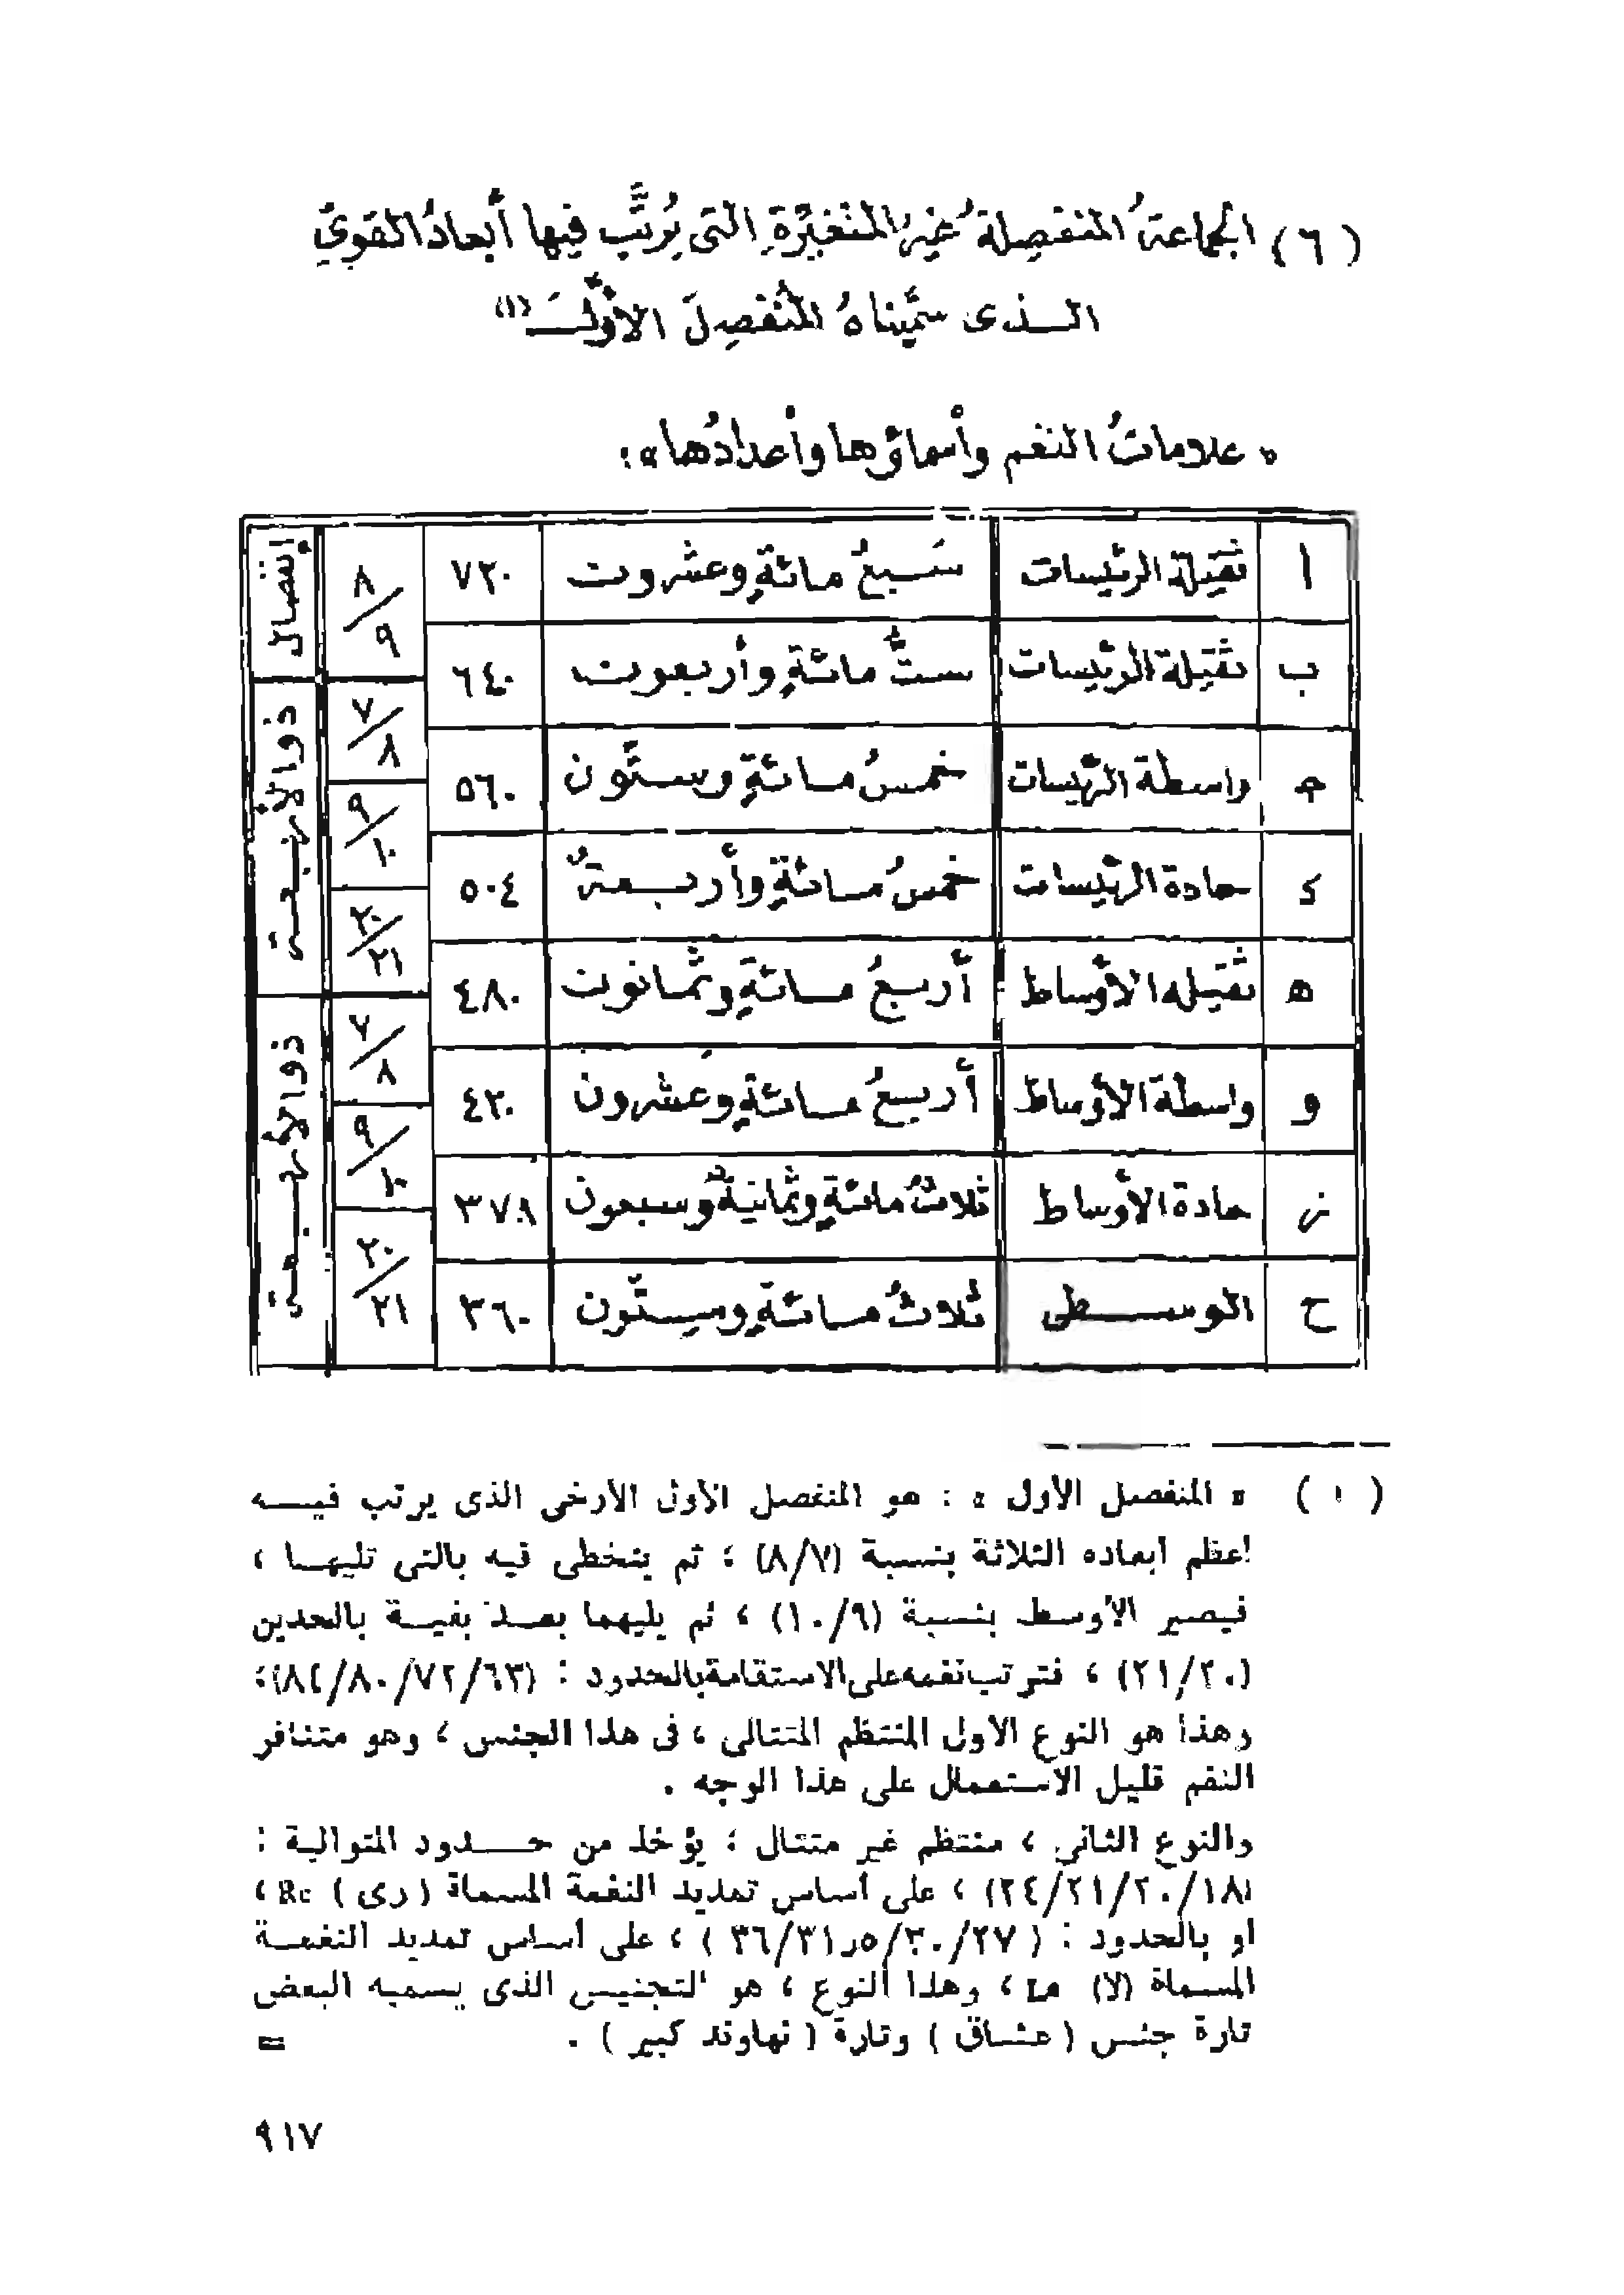 (٦) الجماعةُ المنفصِلةُ غيرُ المتغيِّرةِ التى يُرتَّب فيها أبعادُ القوىِّ
الـذى سمَّيناهُ المُنفصِلَ الأوَّلَ (١)
« علاماتُ النغم وأسماؤها وأعدادُها »:
ا | ثقيلة الرئيسات | سَبعُ مائةٍ وعشرون | ٧٢٠ | ٨/٩ | إنفصال
ب | ثقيلة الرئيسات | ستُّ مائةٍ وأربعون | ٦٤٠ | ٧/٨ | ذو الأربعة
جـ | واسطة الرئيسات | خمسُ مائةٍ وستّون | ٥٦٠ | ٩/١٠
د | حادة الرئيسات | خمسُ مائةٍ وأربعةٌ | ٥٠٤ | ٢٠/٢١
هـ | ثقيله الأوساط | أربعُ مائةٍ وثمانون | ٤٨٠ | ٧/٨ | ذو الأربعة
و | واسطة الأوساط | أربعُ مائةٍ وعشرون | ٤٢٠ | ٩/١٠
ز | حادة الأوساط | ثلاثُ مائةٍ وثمانيةٌ وسبعون | ٣٧٨ | ٢٠/٢١
ح | الوسطى | ثلاثُ مائةٍ وستّون | ٣٦٠
(١) « المنفصل الأول » : هو المنفصل الأول الأرخى الذى يرتب فيه
اعظم ابعاده الثلاثة بنسبة (٨/٧) ؛ ثم يتخطى فيه بالتى تليها ،
فيصير الأوسط بنسبة (١٠/٩) ، ثم يليهما بعد بقية بالحدين
(٢١/٢٠) ، فترتب نغمه على الاستقامة بالحدود : (٨٤/٨٠/٧٢/٦٣) ،
وهذا هو النوع الأول المنتظم المتتالى ، فى هذا الجنس ، وهو متنافر
النغم قليل الاستعمال على هذا الوجه .
والنوع الثانى ، منتظم غير متتال ؛ يؤخذ من حدود المتوالية :
(٢٤/٢١/٢٠/١٨) ، على أساس تمديد النغمة المسماة (رى) Re ،
او بالحدود : (٣٦/٣١٫٥/٣٠/٢٧) ، على أساس تمديد النغمة
المسماة (لا) La ، وهذا النوع ، هو التجنيس الذى يسميه البعض
تارة جنس (عشاق) وتارة (نهاوند كبير) . =
٩١٧